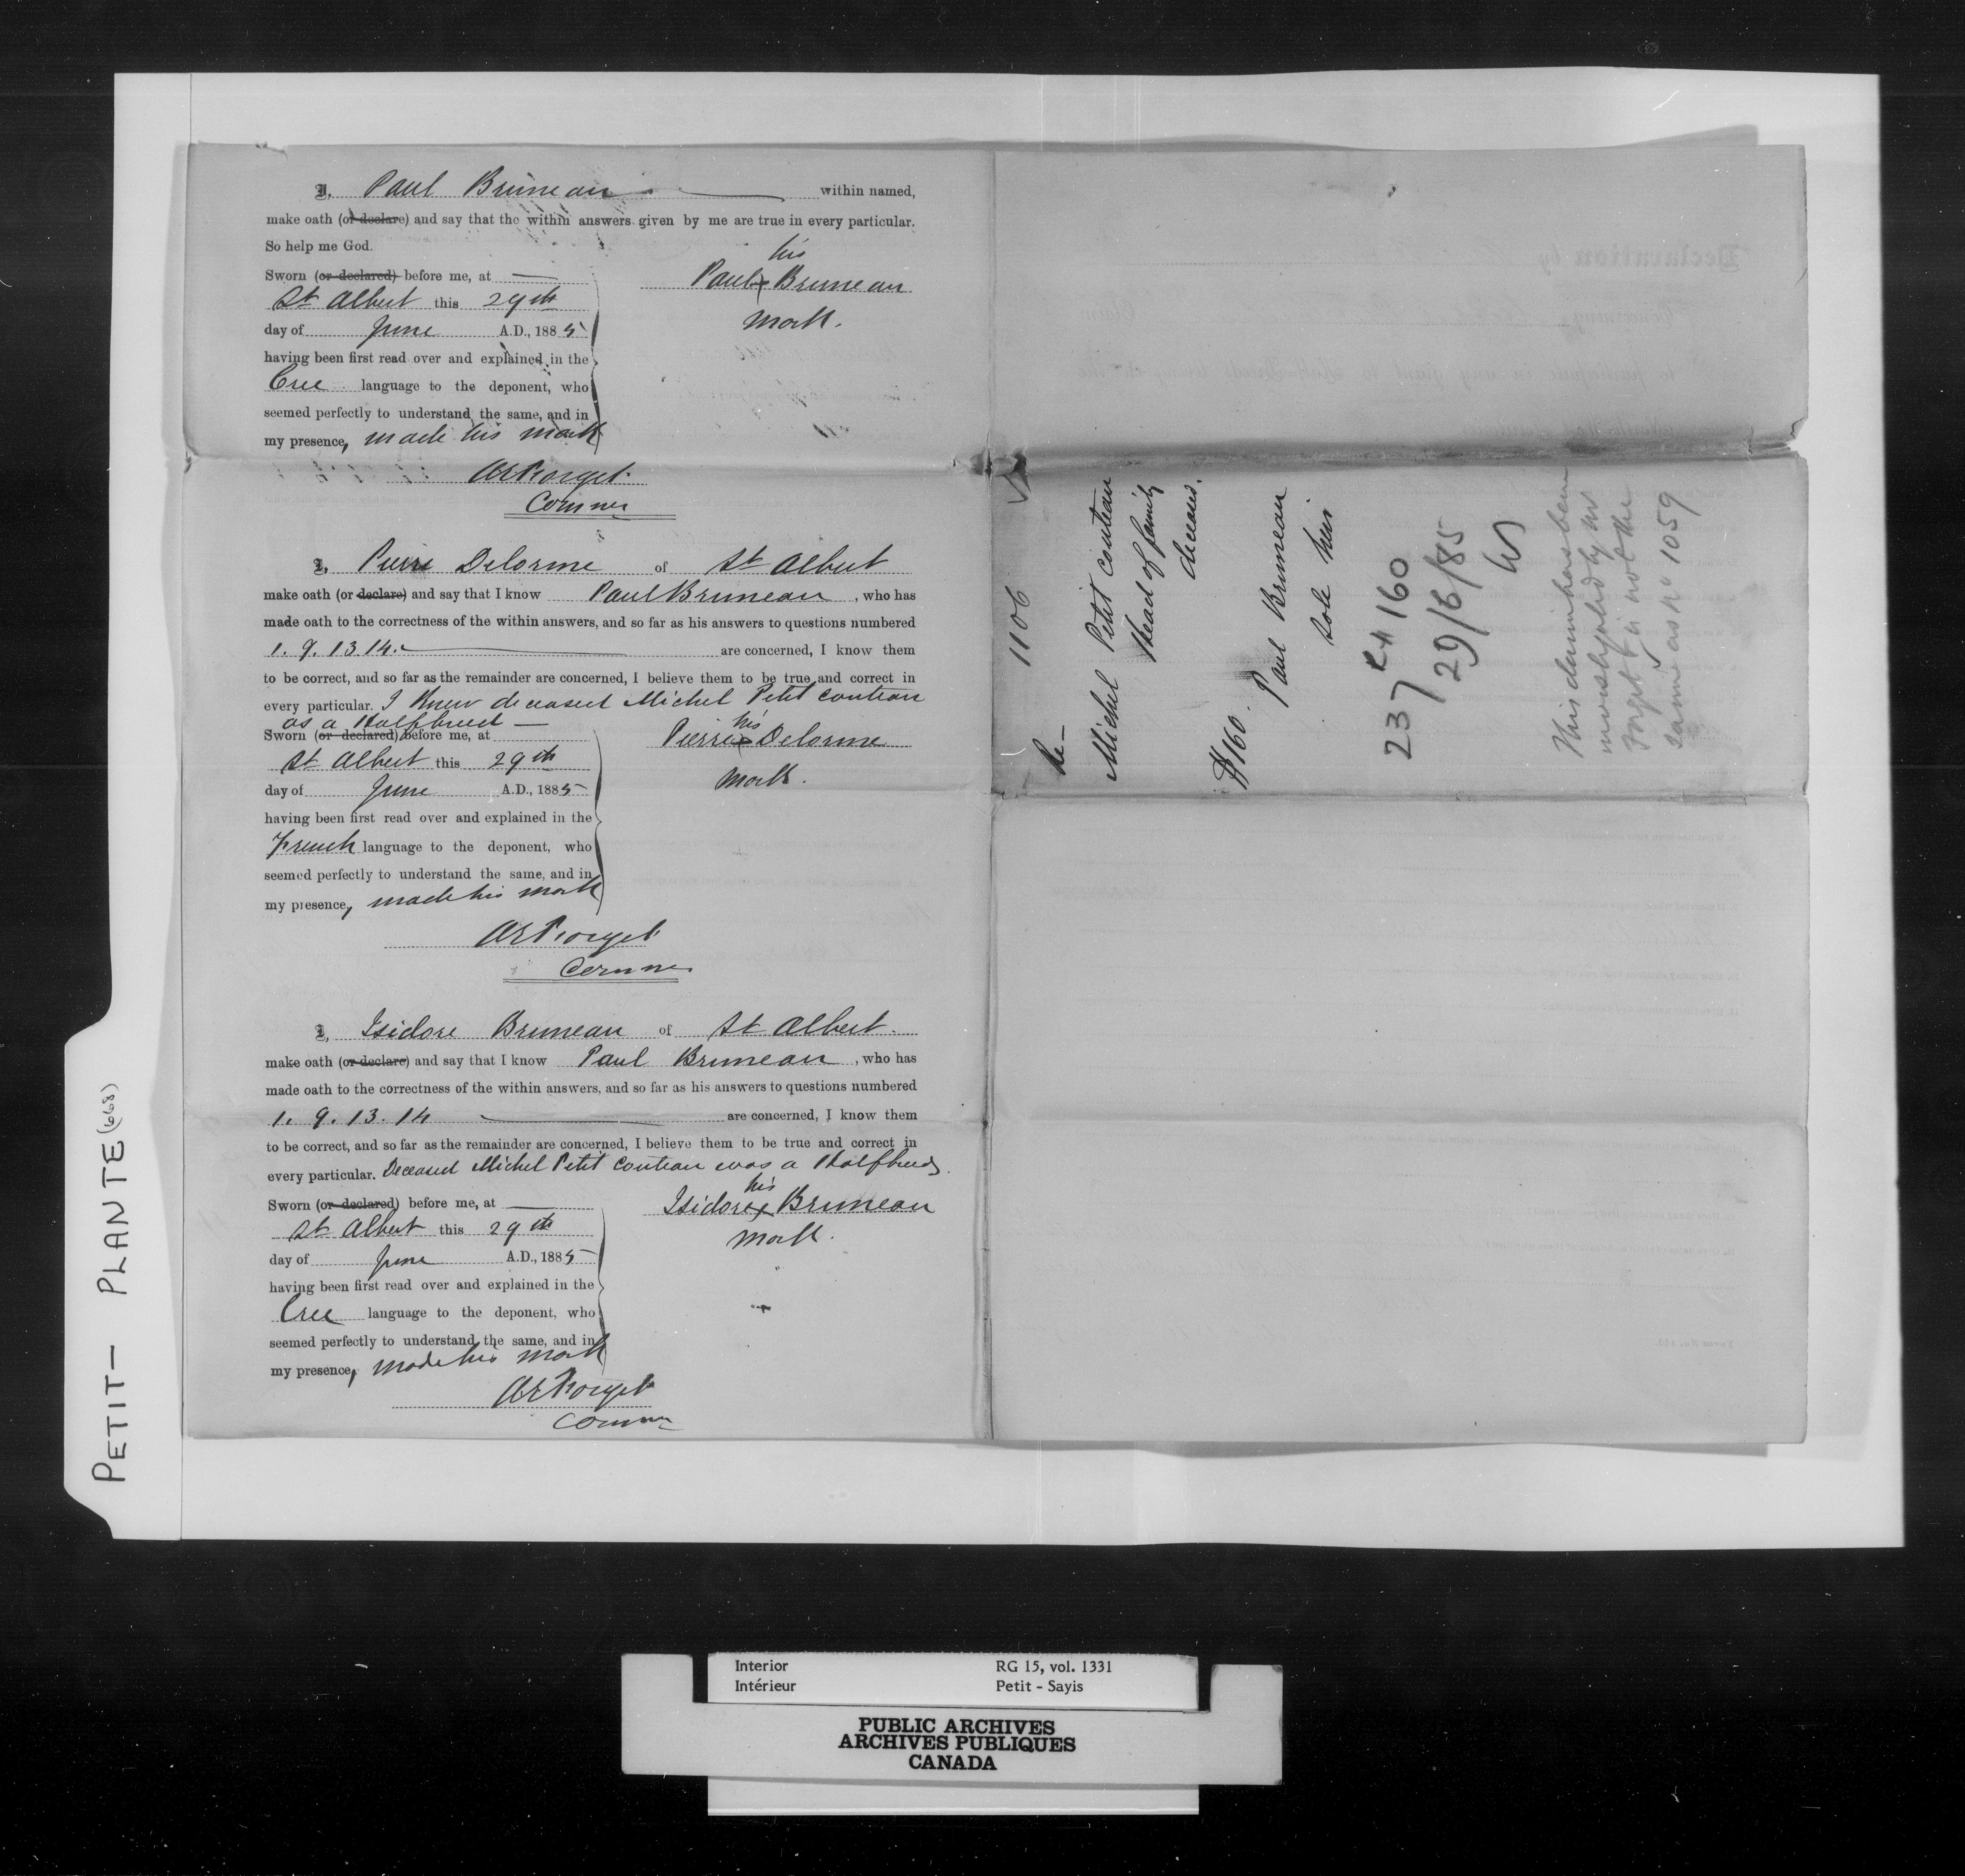 I, Paul Bruneau within named,
make oath (or declare) and say that the within answers given by me are true in every particular.
So help me God.
Sworn (or declared) before me, at
St Albert this 29th
day of June A.D., 1885
having been first read over and explained in the
Cree language to the deponent, who
seemed perfectly to understand the same, and in
my presence, made his mark
his
Paul x Bruneau
mark.
AEForget
Commr
I, Pierre Delorme of St Albert
make oath (or declare) and say that I know Paul Bruneau, who has
made oath to the correctness of the within answers, and so far as his answers to questions numbered
1. 9. 13. 14. are concerned, I know them
to be correct, and so far as the remainder are concerned, I believe them to be true and correct in
every particular. I knew deceased Michel Petit Couteau
as a Halfbreed —
Sworn (or declared) before me, at
St Albert this 29th
day of June A.D., 1885
having been first read over and explained in the
French language to the deponent, who
seemed perfectly to understand the same, and in
my presence, made his mark
his
Pierre x Delorme
mark.
AEForget
Commr
I, Isidore Bruneau of St Albert.
make oath (or declare) and say that I know Paul Bruneau, who has
made oath to the correctness of the within answers, and so far as his answers to questions numbered
1. 9. 13. 14 are concerned, I know them
to be correct, and so far as the remainder are concerned, I believe them to be true and correct in
every particular. Deceased Michel Petit Couteau was a Halfbreed.
Sworn (or declared) before me, at
St Albert this 29th
day of June A.D., 1885
having been first read over and explained in the
Cree language to the deponent, who
seemed perfectly to understand the same, and in
my presence, made his mark
his
Isidore x Bruneau
mark.
AEForget
Commr
1106
Michel Petit Couteau
Head of family
deceased.
Paul Bruneau
sole heir
$160.
237 160
29/6/85
This claim has been
investigated by Mr
Forget is not the
same as No 1059
PETIT — PLANTE (668)
Interior RG 15, vol. 1331
Intérieur Petit - Sayis
PUBLIC ARCHIVES
ARCHIVES PUBLIQUES
CANADA